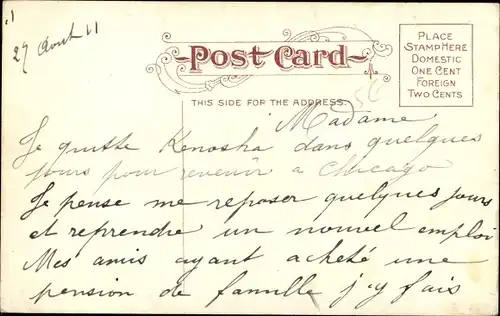 27 Aout 11
POST CARD
THIS SIDE FOR THE ADDRESS.
PLACE
STAMP HERE
DOMESTIC
ONE CENT
FOREIGN
TWO CENTS
Madame
Je quitte Kenosha dans quelques
jours pour revenir a Chicago
Je pense me reposer quelques jours
et reprendre un nouvel emploi
Mes amis ayant acheté une
pension de famille j'y fais